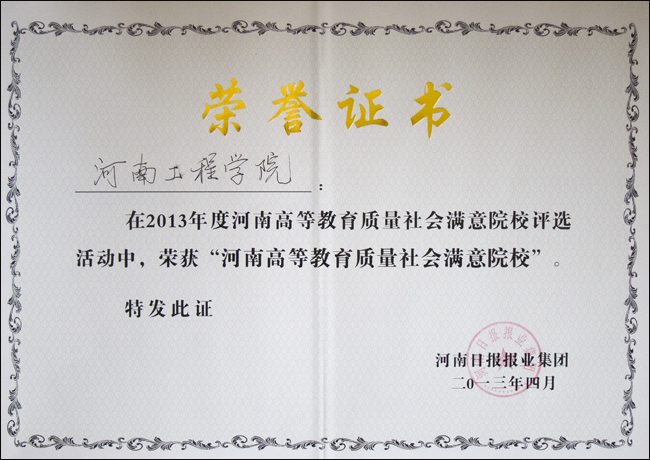 荣誉证书
河南工程学院：
在2013年度河南高等教育质量社会满意院校评选
活动中，荣获“河南高等教育质量社会满意院校”。
特发此证
河南日报报业集团
二〇一三年四月